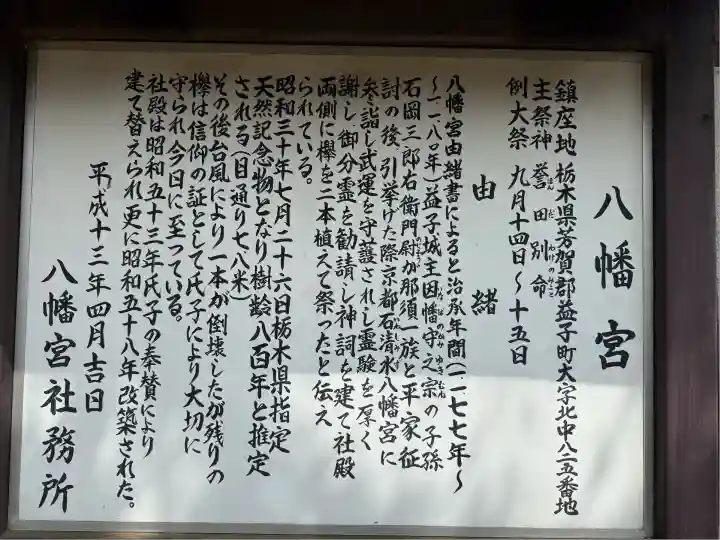 八幡宮
鎮座地 栃木県芳賀郡益子町大字北中八二五番地
主祭神 誉田別命
ほんだわけのみこと
例大祭 九月十四日～十五日
由緒
八幡宮由緒書によると治承年間(一一七七年～
～一一八〇年)益子城主因幡守之宗の子孫
石岡三郎右衛門尉が那須一族と平家征
討の後、引挙げた際京都石清水八幡宮に
参詣し武運を守護されし霊験を厚く
謝し御分霊を勧請し神詞を建て社殿
両側に欅を二本植えて祭ったと伝え
られている。
昭和三十年七月二十六日栃木県指定
天然記念物となり樹齢八百年と推定
される(目通り七八米)
その後台風により一本が倒壊したが残りの
欅は信仰の証として氏子により大切に
守られ今日に至っている。
社殿は昭和五十三年氏子の奉賛により
建て替えられ更に昭和五十八年改築された。
平成十三年四月吉日
八幡宮社務所